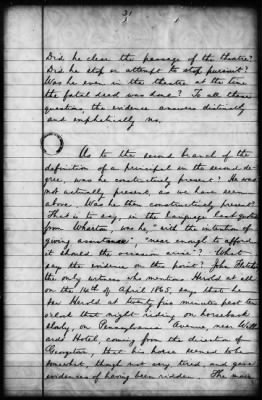 31
Did he clear the passage of the theatre?
Did he stop or attempt to stop pursuit?
Was he even in the theatre at the time
the fatal deed was done? To all these
questions, the evidence answers distinctly
and emphatically no.
As to the second branch of the
definition of a principal in the second de-
gree, was he constructively present? He was
not actually present, as we have seen
above. Was he then constructively present?
That is to say, in the language last quoted
from Wharton, was he, "with the intention of
giving assistance", "near enough to afford
it should the occasion arise"? What
say the evidence on this point? John Fletcher
the only witness who mentions Herold at all
on the 14th of April 1865, says that he
saw Herold at twenty five minutes past ten
oclock that night riding on horseback
slowly, on Pennsylvania Avenue, near Will-
ards' Hotel, coming from the direction of
Georgetown, that his horse seemed to be
somewhat, though not very tired, and gave
evidences of having been ridden. The main